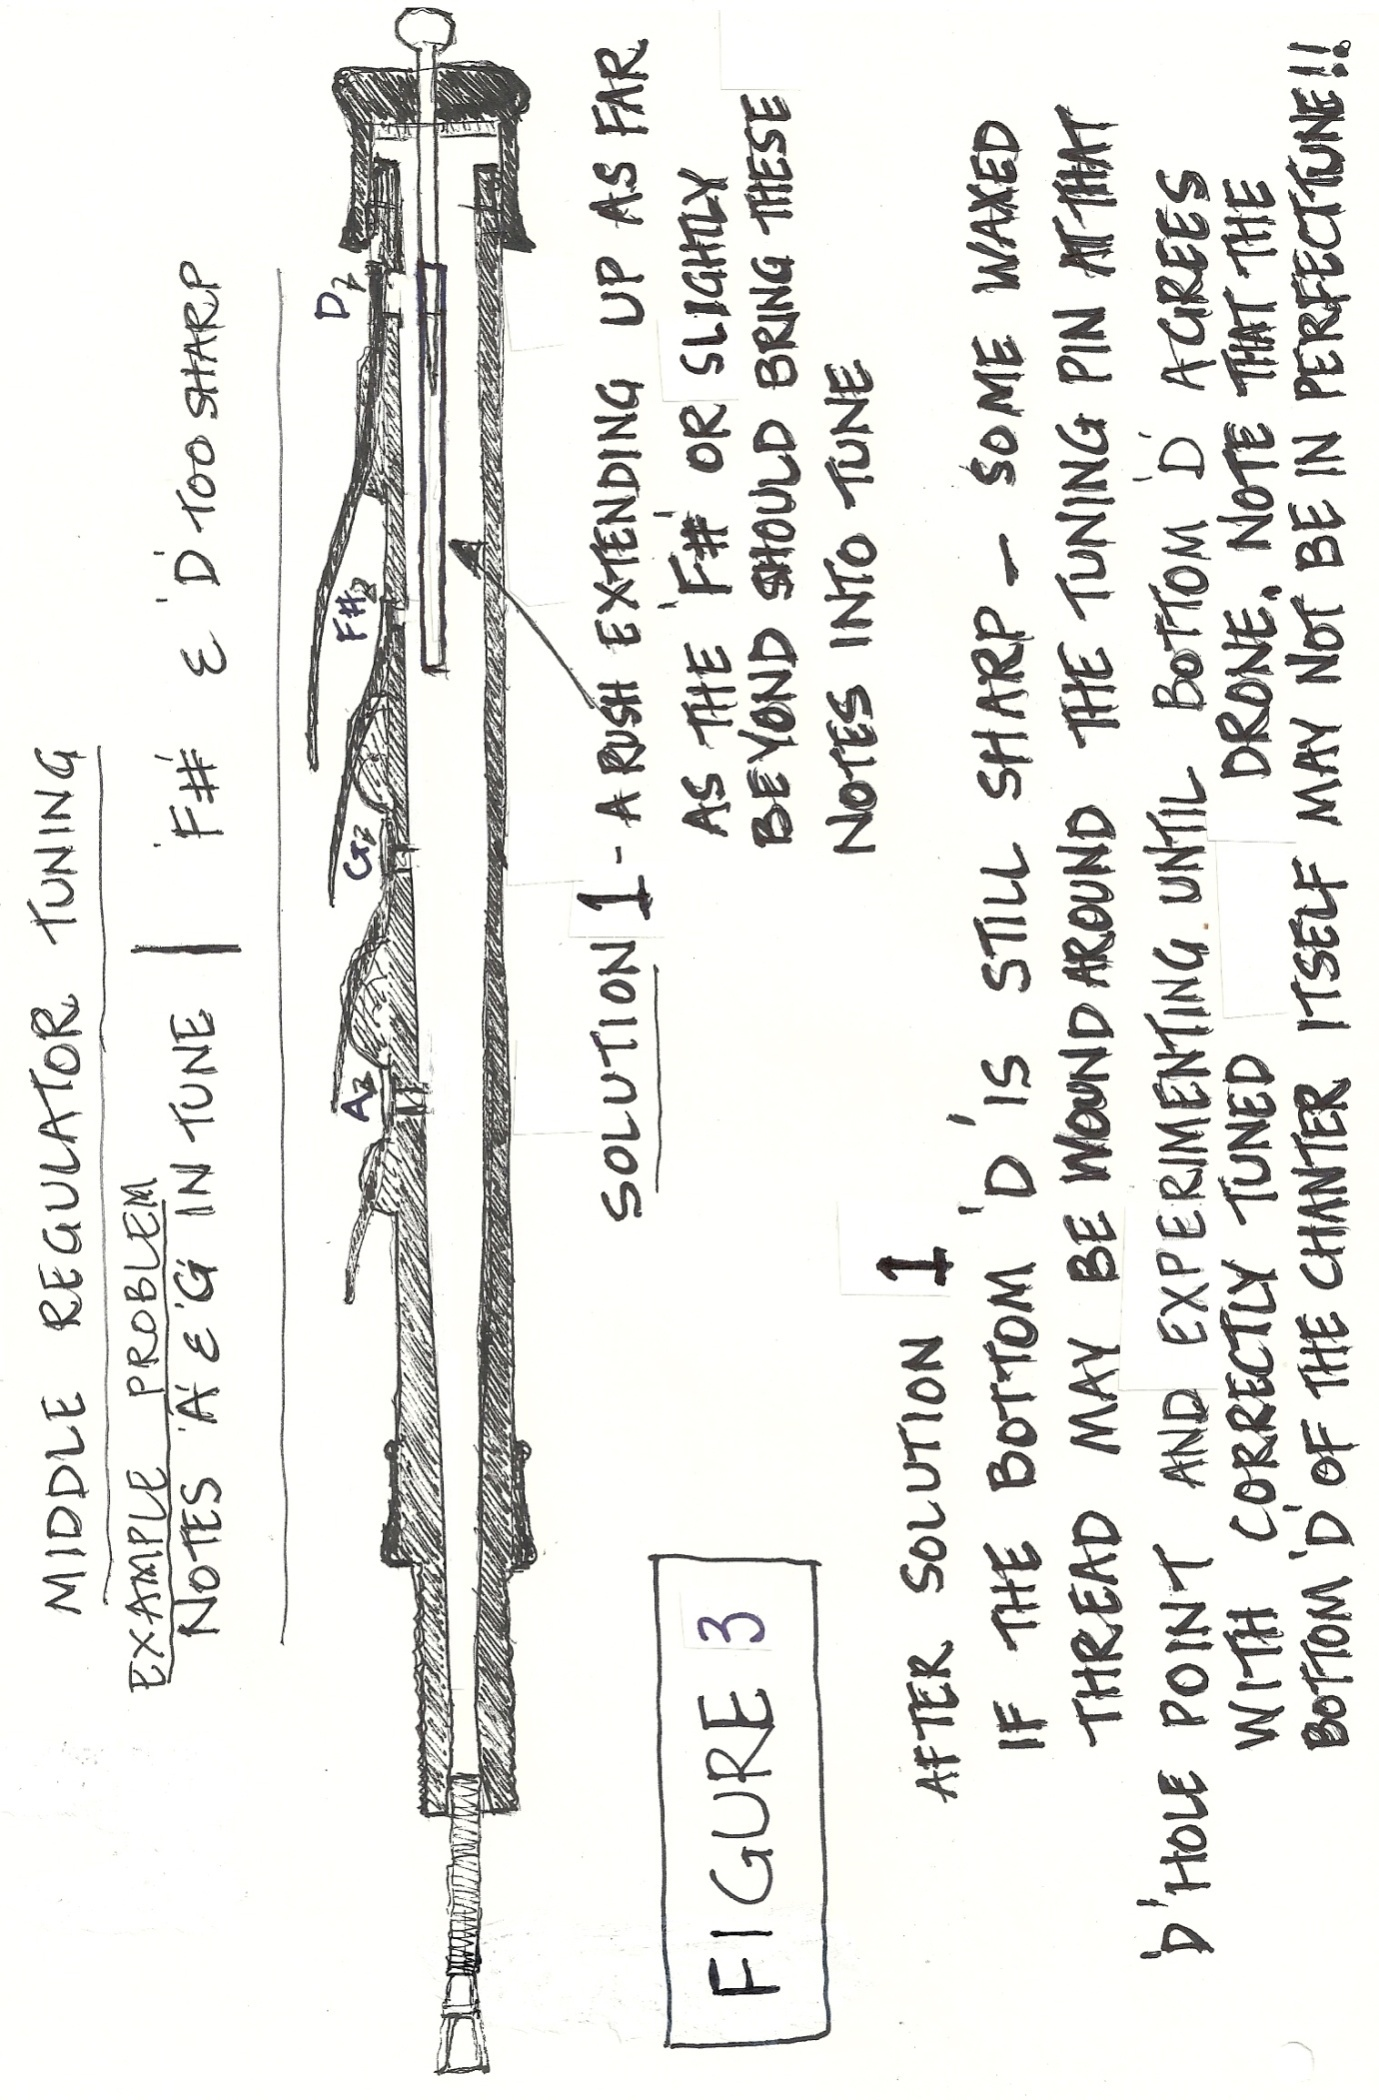 MIDDLE REGULATOR TUNING
EXAMPLE PROBLEM
NOTES 'A' & 'G' IN TUNE | 'F#' & 'D' TOO SHARP
A G F# D
SOLUTION 1 - A RUSH EXTENDING UP AS FAR
AS THE 'F#' OR SLIGHTLY
BEYOND SHOULD BRING THESE
NOTES INTO TUNE
FIGURE 3
AFTER SOLUTION 1
IF THE BOTTOM 'D' IS STILL SHARP - SOME WAXED
THREAD MAY BE WOUND AROUND THE TUNING PIN AT THAT
'D' HOLE POINT AND EXPERIMENTING UNTIL BOTTOM 'D' AGREES
WITH CORRECTLY TUNED DRONE. NOTE THAT THE
BOTTOM 'D' OF THE CHANTER ITSELF MAY NOT BE IN PERFECT TUNE!!